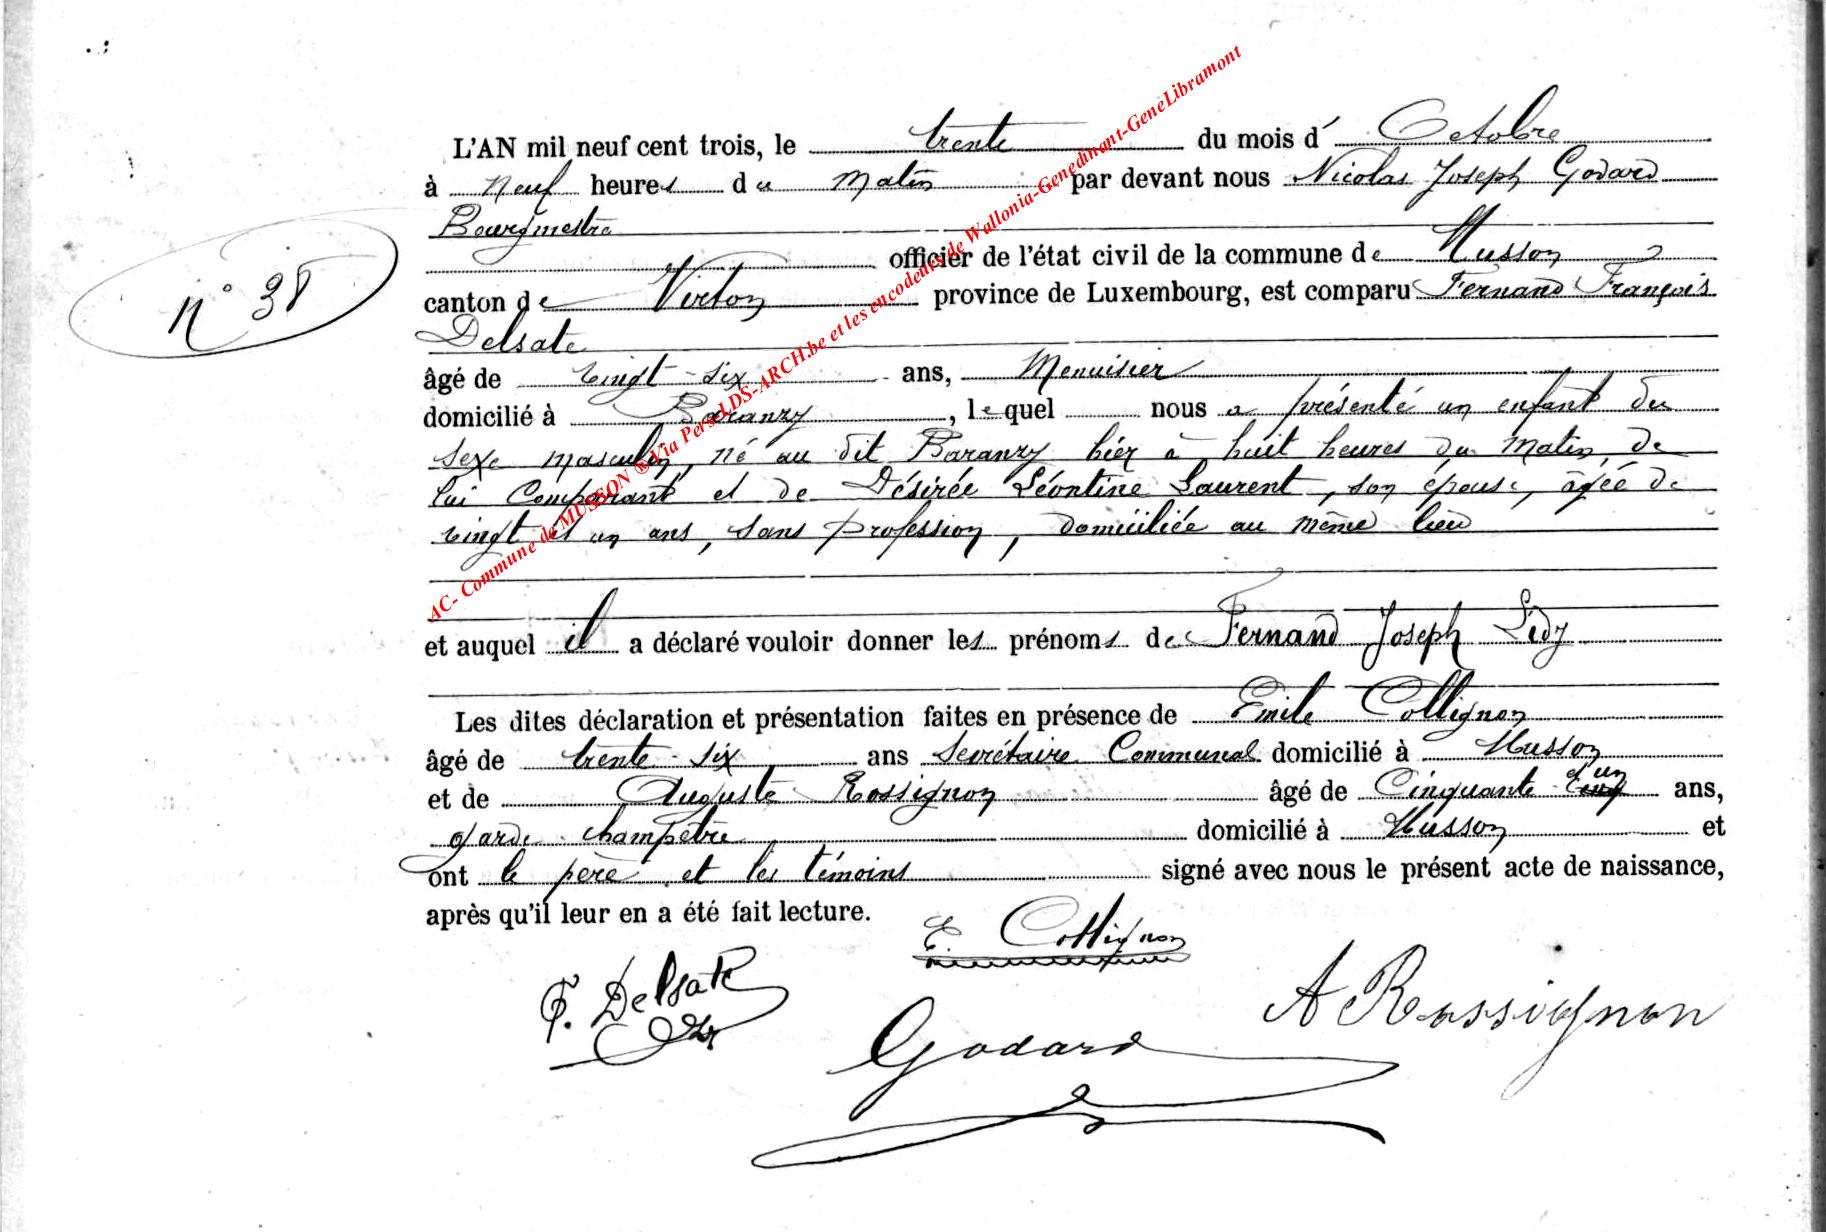 L'AN mil neuf cent trois, le trente du mois d' Octobre
à Neuf heures du Matin par devant nous Nicolas Joseph Godard
Bourgmestre
officier de l'état civil de la commune de Musson
N° 38
canton de Virton province de Luxembourg, est comparu Fernand François
Delsate
âgé de vingt-six ans, Menuisier
domicilié à Baranzy, lequel nous a présenté un enfant du
sexe masculin, né au dit Baranzy hier à huit heures du Matin, de
lui Comparant et de Désirée Léontine Laurent, son épouse, âgée de
vingt et un ans, sans profession, domiciliée au même lieu
et auquel il a déclaré vouloir donner les prénoms de Fernand Joseph Lédy
Les dites déclaration et présentation faites en présence de Emile Collignon
âgé de trente-six ans Secrétaire Communal domicilié à Musson
et de Auguste Rossignon âgé de Cinquante et un ans,
garde champêtre domicilié à Musson et
ont le père et les témoins signé avec nous le présent acte de naissance,
après qu'il leur en a été fait lecture.
E. Collignon
F. Delsate
A Rossignon
Godard
AC- Commune de MUSSON ® Via Pers-LDS-ARCH.be et les encodeurs de Wallonia-Genedinant-GeneLibramont